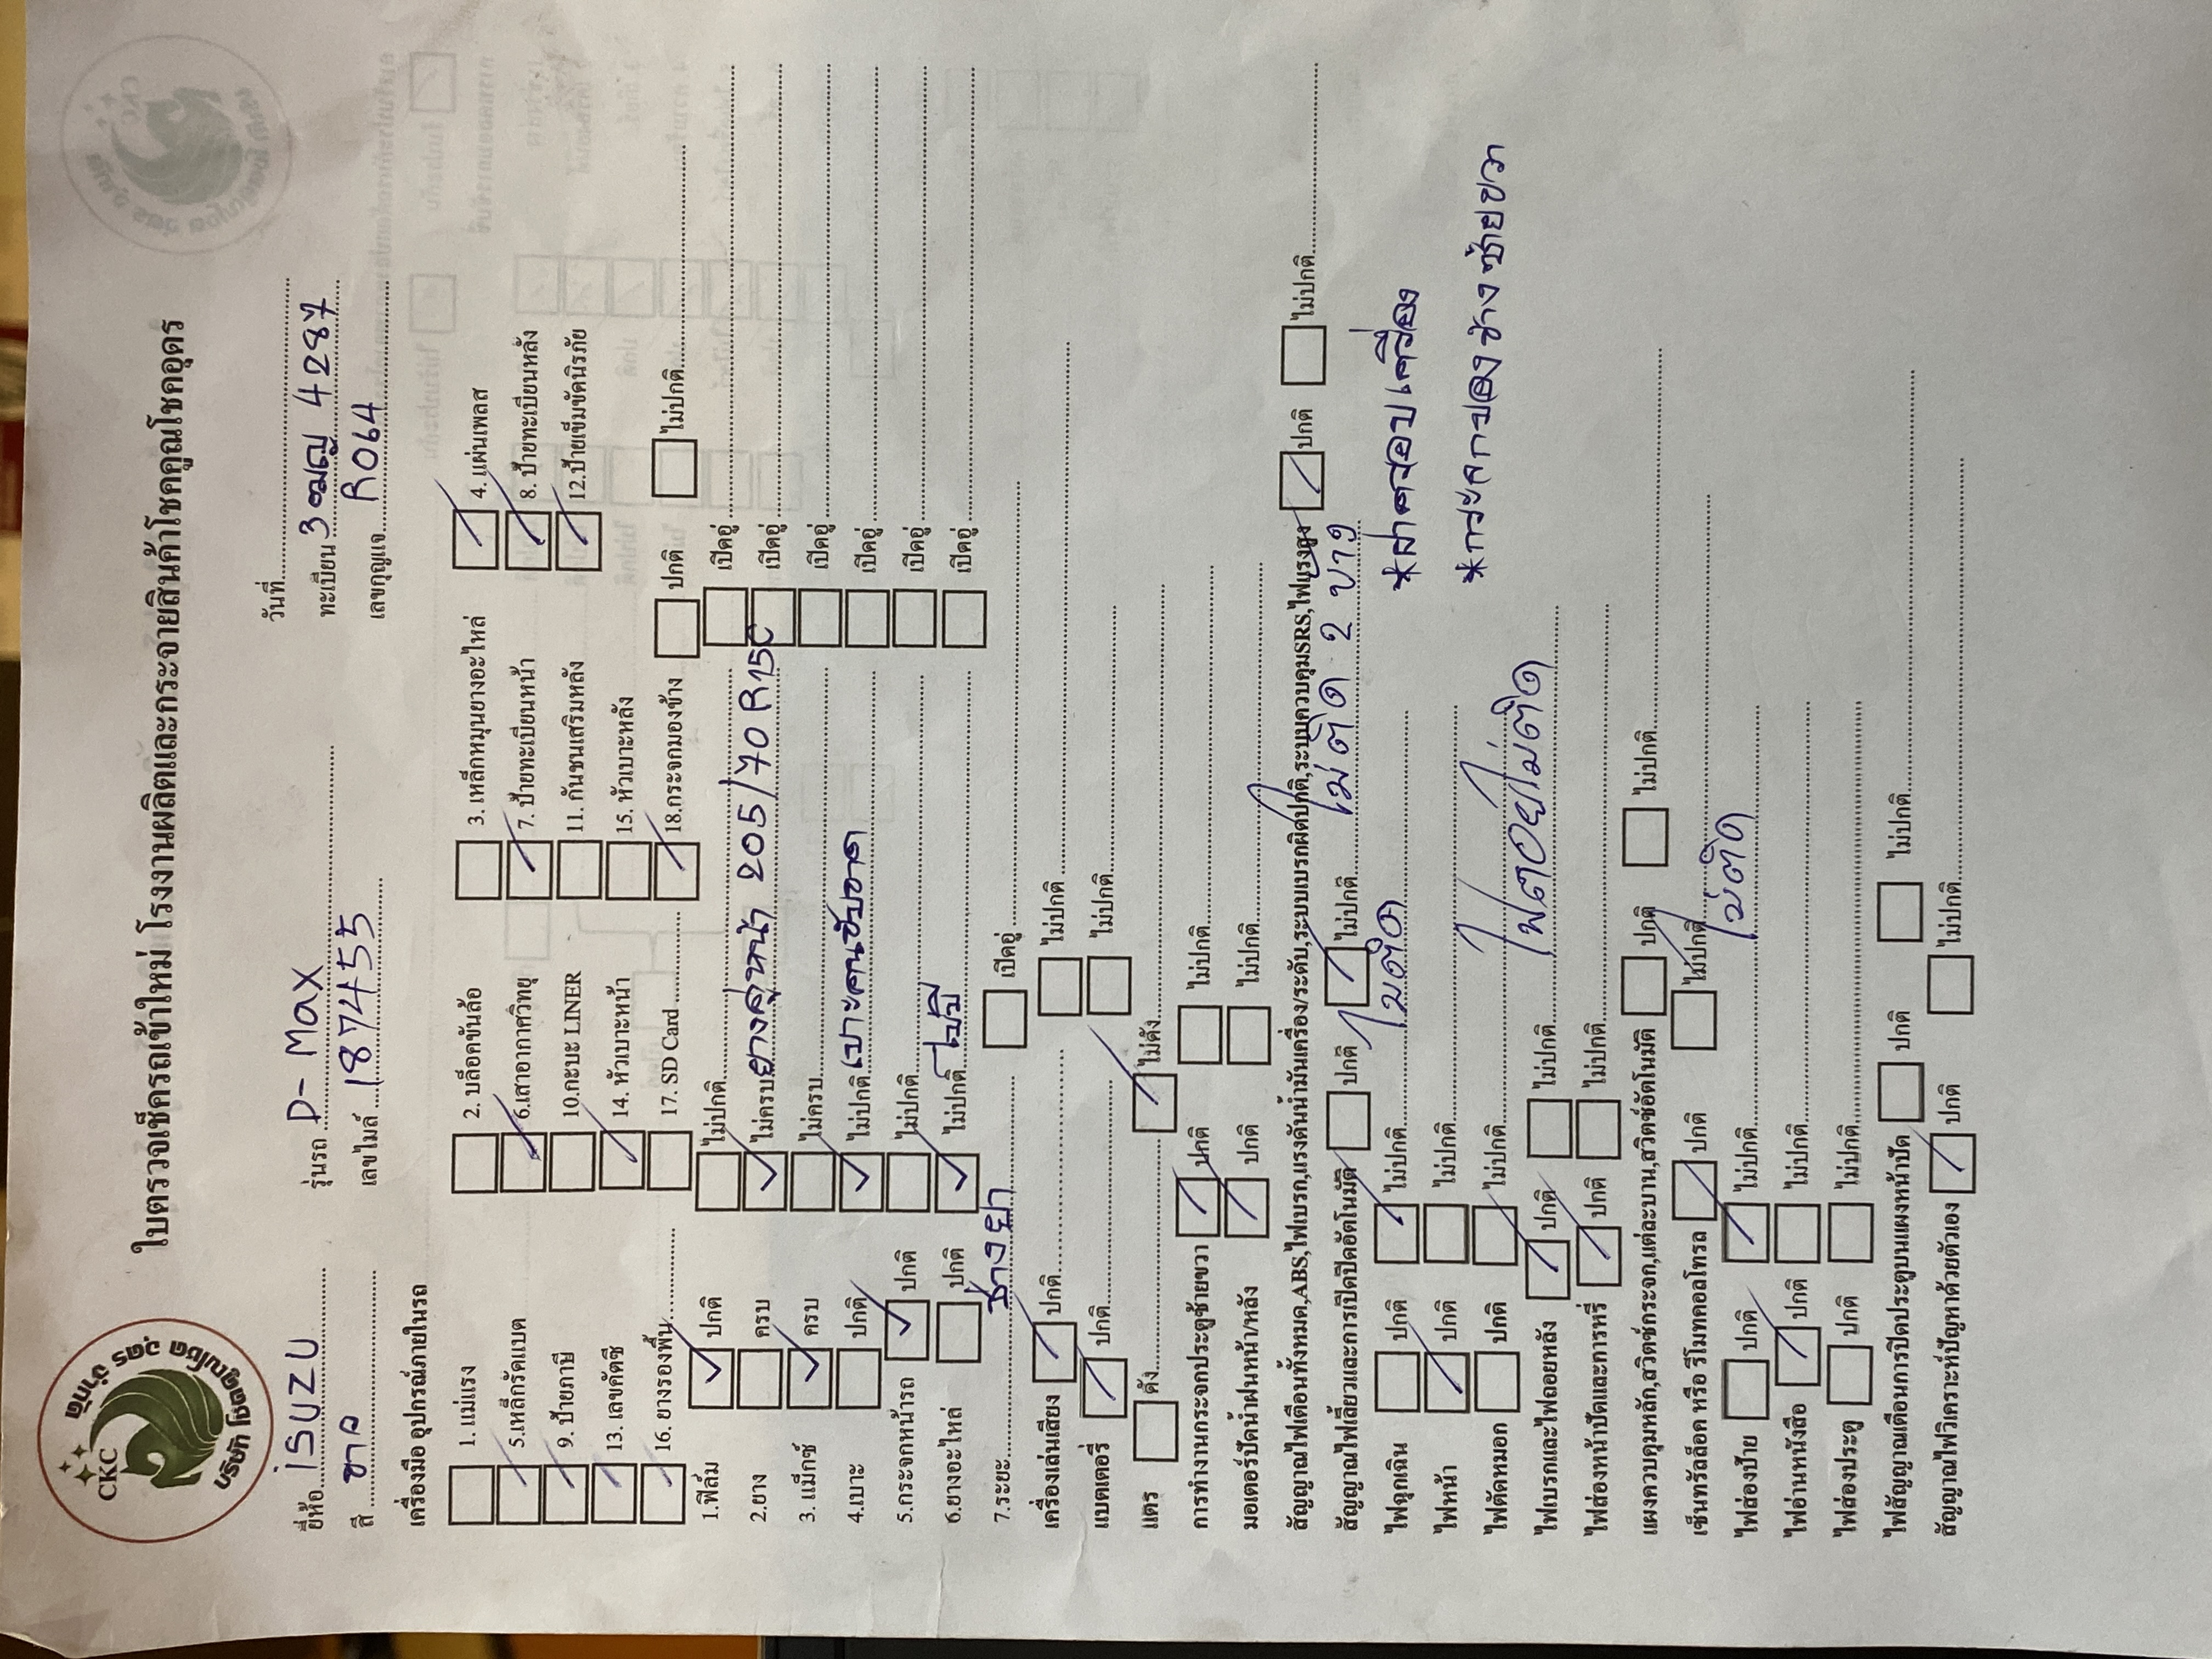 บริษัท โชคคูณโชค อุดร จำกัด
CKC
ใบตรวจเช็ครถเข้าใหม่ โรงงานผลิตและกระจายสินค้าโชคคูณโชคอุดร
วันที่
ยี่ห้อ ISUZU รุ่นรถ D-Max ทะเบียน 3ฒญ 4287
สี ขาว เลขไมล์ 187455 เลขกุญแจ R064
เครื่องมือ อุปกรณ์ภายในรถ
1. แม่แรง 2. บล็อคขันล้อ 3. เหล็กหมุนยางอะไหล่ 4. แผ่นเพลส
5.เหล็กรัดแบต 6.เสาอากาศวิทยุ 7. ป้ายทะเบียนหน้า 8. ป้ายทะเบียนหลัง
9. ป้ายภาษี 10.กะบะ LINER 11. กันชนเสริมหลัง 12.ป้ายเข็มขัดนิรภัย
13. เลขคัตซี 14. หัวเบาะหน้า 15. หัวเบาะหลัง
16. ยางรองพื้น 17. SD Card 18.กระจกมองข้าง ปกติ ไม่ปกติ
1.ฟิล์ม ปกติ ไม่ปกติ เปิดอู่
2.ยาง ครบ ไม่ครบ ยางคู่หน้า 205/70 R15C เปิดอู่
3. แม็กซ์ ครบ ไม่ครบ เปิดอู่
4.เบาะ ปกติ ไม่ปกติ เบาะคนขับขาด เปิดอู่
5.กระจกหน้ารถ ปกติ ไม่ปกติ เปิดอู่
6.ยางอะไหล่ ปกติ ไม่ปกติ ไม่มี เปิดอู่
7.ระยะ ช่างยา เปิดอู่
เครื่องเล่นเสียง ปกติ ไม่ปกติ
แบตเตอรี่ ปกติ ไม่ปกติ
แตร ดัง ไม่ดัง
การทำงานกระจกประตูซ้ายขวา ปกติ ไม่ปกติ
มอเตอร์ปัดน้ำฝนหน้า/หลัง ปกติ ไม่ปกติ
สัญญาณไฟเตือนทั้งหมด,ABS,ไฟเบรก,แรงดันน้ำมันเครื่อง/ระดับ,ระบบเบรกผิดปกติ,ระบบควบคุมSRS,ไฟแรงสูง ปกติ ไม่ปกติ
สัญญาณไฟเลี้ยวและการเปิดปิดอัตโนมัติ ปกติ ไม่ปกติ ไม่ติด 2 ข้าง
ไฟฉุกเฉิน ปกติ ไม่ปกติ ไม่ติด
*ฝาครอบเครื่อง
ไฟหน้า ปกติ ไม่ปกติ
*กระจกมองข้างซ้ายขวา
ไฟตัดหมอก ปกติ ไม่ปกติ
ไฟเบรกและไฟถอยหลัง ปกติ ไม่ปกติ ไฟถอยไม่ติด
ไฟส่องหน้าปัดและการหรี่ ปกติ ไม่ปกติ
แผงควบคุมหลัก,สวิตช์กระจก,แต่ละบาน,สวิตช์อัตโนมัติ ปกติ ไม่ปกติ
เซ็นทรัลล็อค หรือ รีโมทคอลโทรล ปกติ ไม่ปกติ
ไฟส่องป้าย ปกติ ไม่ปกติ ไม่ติด
ไฟอ่านหนังสือ ปกติ ไม่ปกติ
ไฟส่องประตู ปกติ ไม่ปกติ
ไฟสัญญาณเตือนการปิดประตูบนแผงหน้าปัด ปกติ ไม่ปกติ
สัญญาณไฟวิเคราะห์ปัญหาด้วยตัวเอง ปกติ ไม่ปกติ